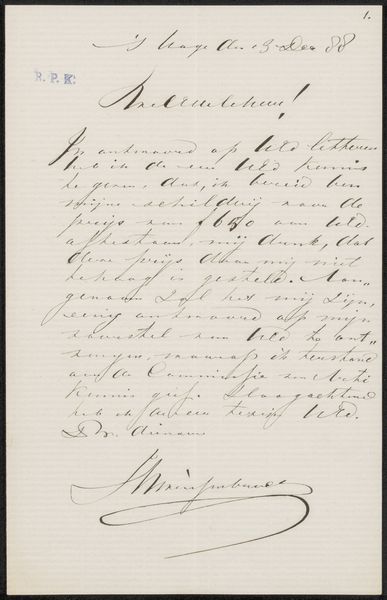 1.
's Hage den 3 Dec 88
R. P. K.
WelEdele heer!
In antwoord op UEd letteren
heb ik de eer UEd kennis
te geven, dat, ik bereid ben
mijne schilderij voor de
prijs van f 650 aan UEd.
aftestaan, mij dunkt, dat
deze prijs door mij niet
te hoog is gesteld. Aan-
genaam zal het mij zijn,
eenig antwoord op mijn
voorstel van UEd te ont-
vangen, waarop ik
aan de Commissie van Arti
kennis geef. Hoogachtend
heb ik de eer te zijn UEd.
Dw. dienaar